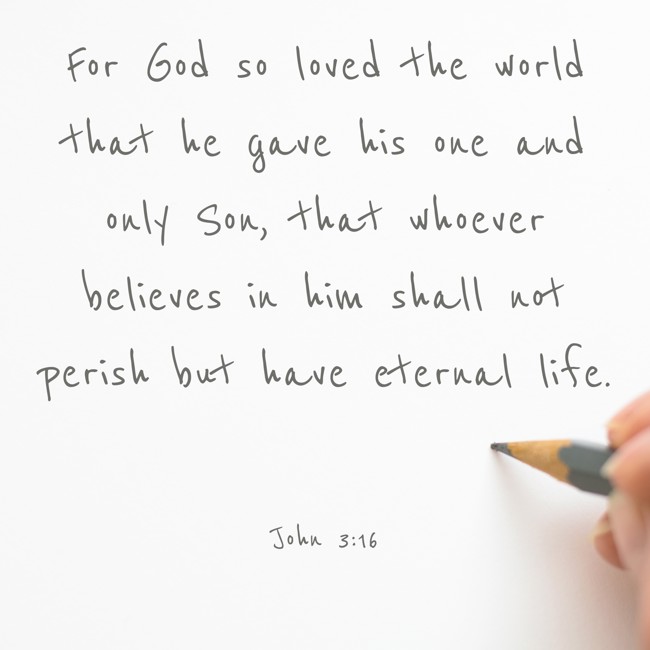 For God so loved the world
that he gave his one and
only Son, that whoever
believes in him shall not
perish but have eternal life.
John 3:16